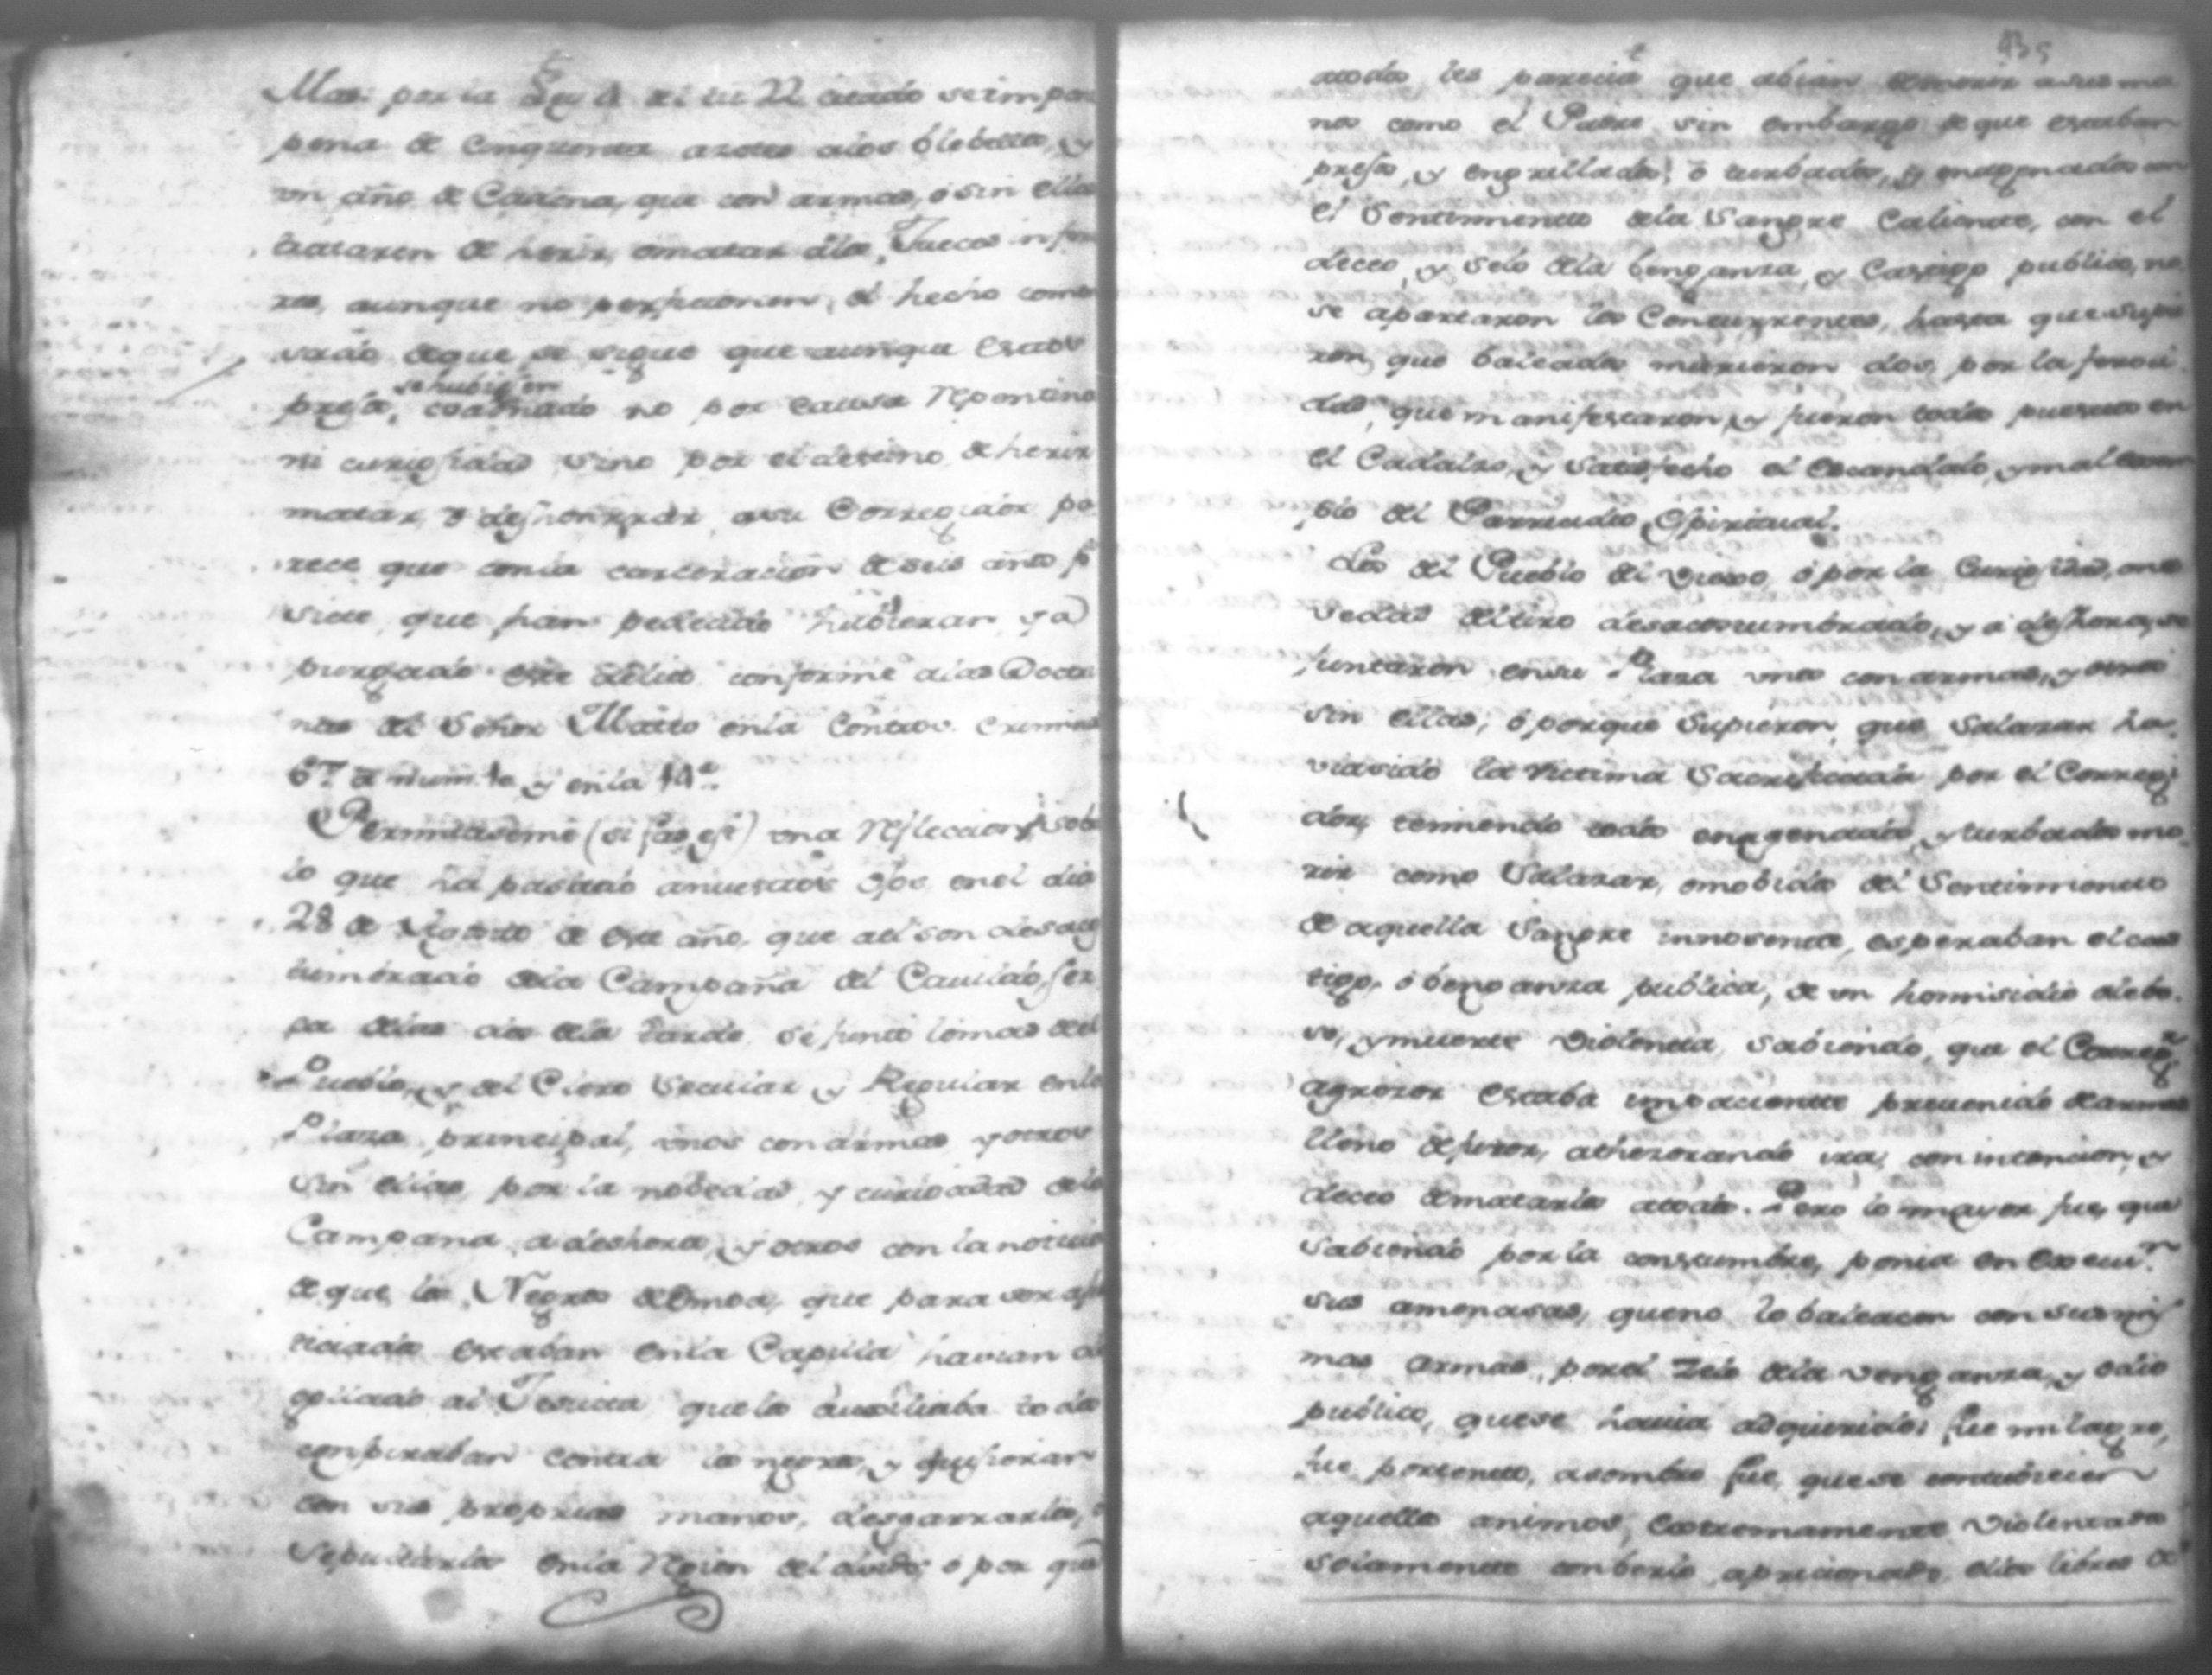 Mas: por la Ley 6 del tit 22 citado se impon
pena de Cinquenta azotes alos plebellos, y
un año de Cadena, que con armas, ó sin ellas
trataren de herir, o matar alos Jueces infero
res, aunque no perficionen, el hecho comen
sado, deque se sigue que aunque estos
presos, se hubiesen coadunado no por causa repentina
ni curiosidad, sino por el destino de herir
matar, ó deshonrrar, a su Corregidor pa
rece que con la carceracion de seis años p.ª
siete, que han padecido hubieran ya
purgado este delito, conforme alas Doctri
nas del Señor Matto en la Controv. crimin
67. a num. 1o, y en la 10ª.
Permitaseme (si fas est) una refleccion, sobre
lo que ha pasado a nuestros ojos, en el dia
28 de Agosto de este año, que al son desacos
tumbrado dela Campaña del Cauildo, ser
ca delas dos dela tarde, se junto lo mas del
Pueblo, y del Clero Secular y Regular en la
Plaza principal, unos con armas, y otros
sin ellas, por la nobedad, y curiosidad dela
Campana, a deshora, y otros con la noticia
de que los Negros de Omoa, que para ser ajus
ticiados estaban en la Capilla havian de
gollado al Jesuita que los auxiliaba todos
conspiraban contra los negros, y quisieran
con sus proprias manos, desgarrarlos, o
sepultarlos en la Region del olvido, o por que
135
a todos les parecia que abian de morir a sus ma
nos como el Padre, sin embargo de que estaban
presos, y engrillados; ó turbados, y enagenados con
el Sentimiento dela Sangre Caliente, con el
deceo, y selo dela benganza, y Castigo publico, no
se apartaron los Concurrentes, hasta que supie
ron, que baleados murieron dos, por la feroci
dad, que manifestaron, y fueron todos puestos en
el Cadalzo, y satisfecho el escandalo, y mal exem
plo del Parricidio Espiritual.
Los del Pueblo del Viejo, ó por la Curiosidad, ono
vedad del tiro desacostumbrado, y a deshoras, se
juntaron en su Plaza unos con armas, y otros
sin ellas; ó porque Supieron, que Salazar ha
via sido la victima Sacrificada por el Corregi
dor, temiendo todos enagenados, y turbados mo
rir como Salazar, o mobidos del Sentimiento
de aquella Sangre innosente, esperaban el cas
tigo, ó benganza publica, de un homisidio alebo
so, y muerte violenta, Sabiendo, que el Correg.r
agresor estaba impaciente preuenido de armas
lleno de furor, athezorando ira, con intencion, y
deceo de matarlos a todos. Pero lo mayor fue, que
sabiendo por la constumbre, ponia en execu.n
sus amenasas, que no lo baleacen con sus mis
mas armas, por el zelo dela venganza, y odio
publico, que se hauia adquirido: fue milagro,
fue portento, asombro fue, que se contubiecen
aquellos animos, extremamente violentados
solamente con berlo apricionado, ellos libres de